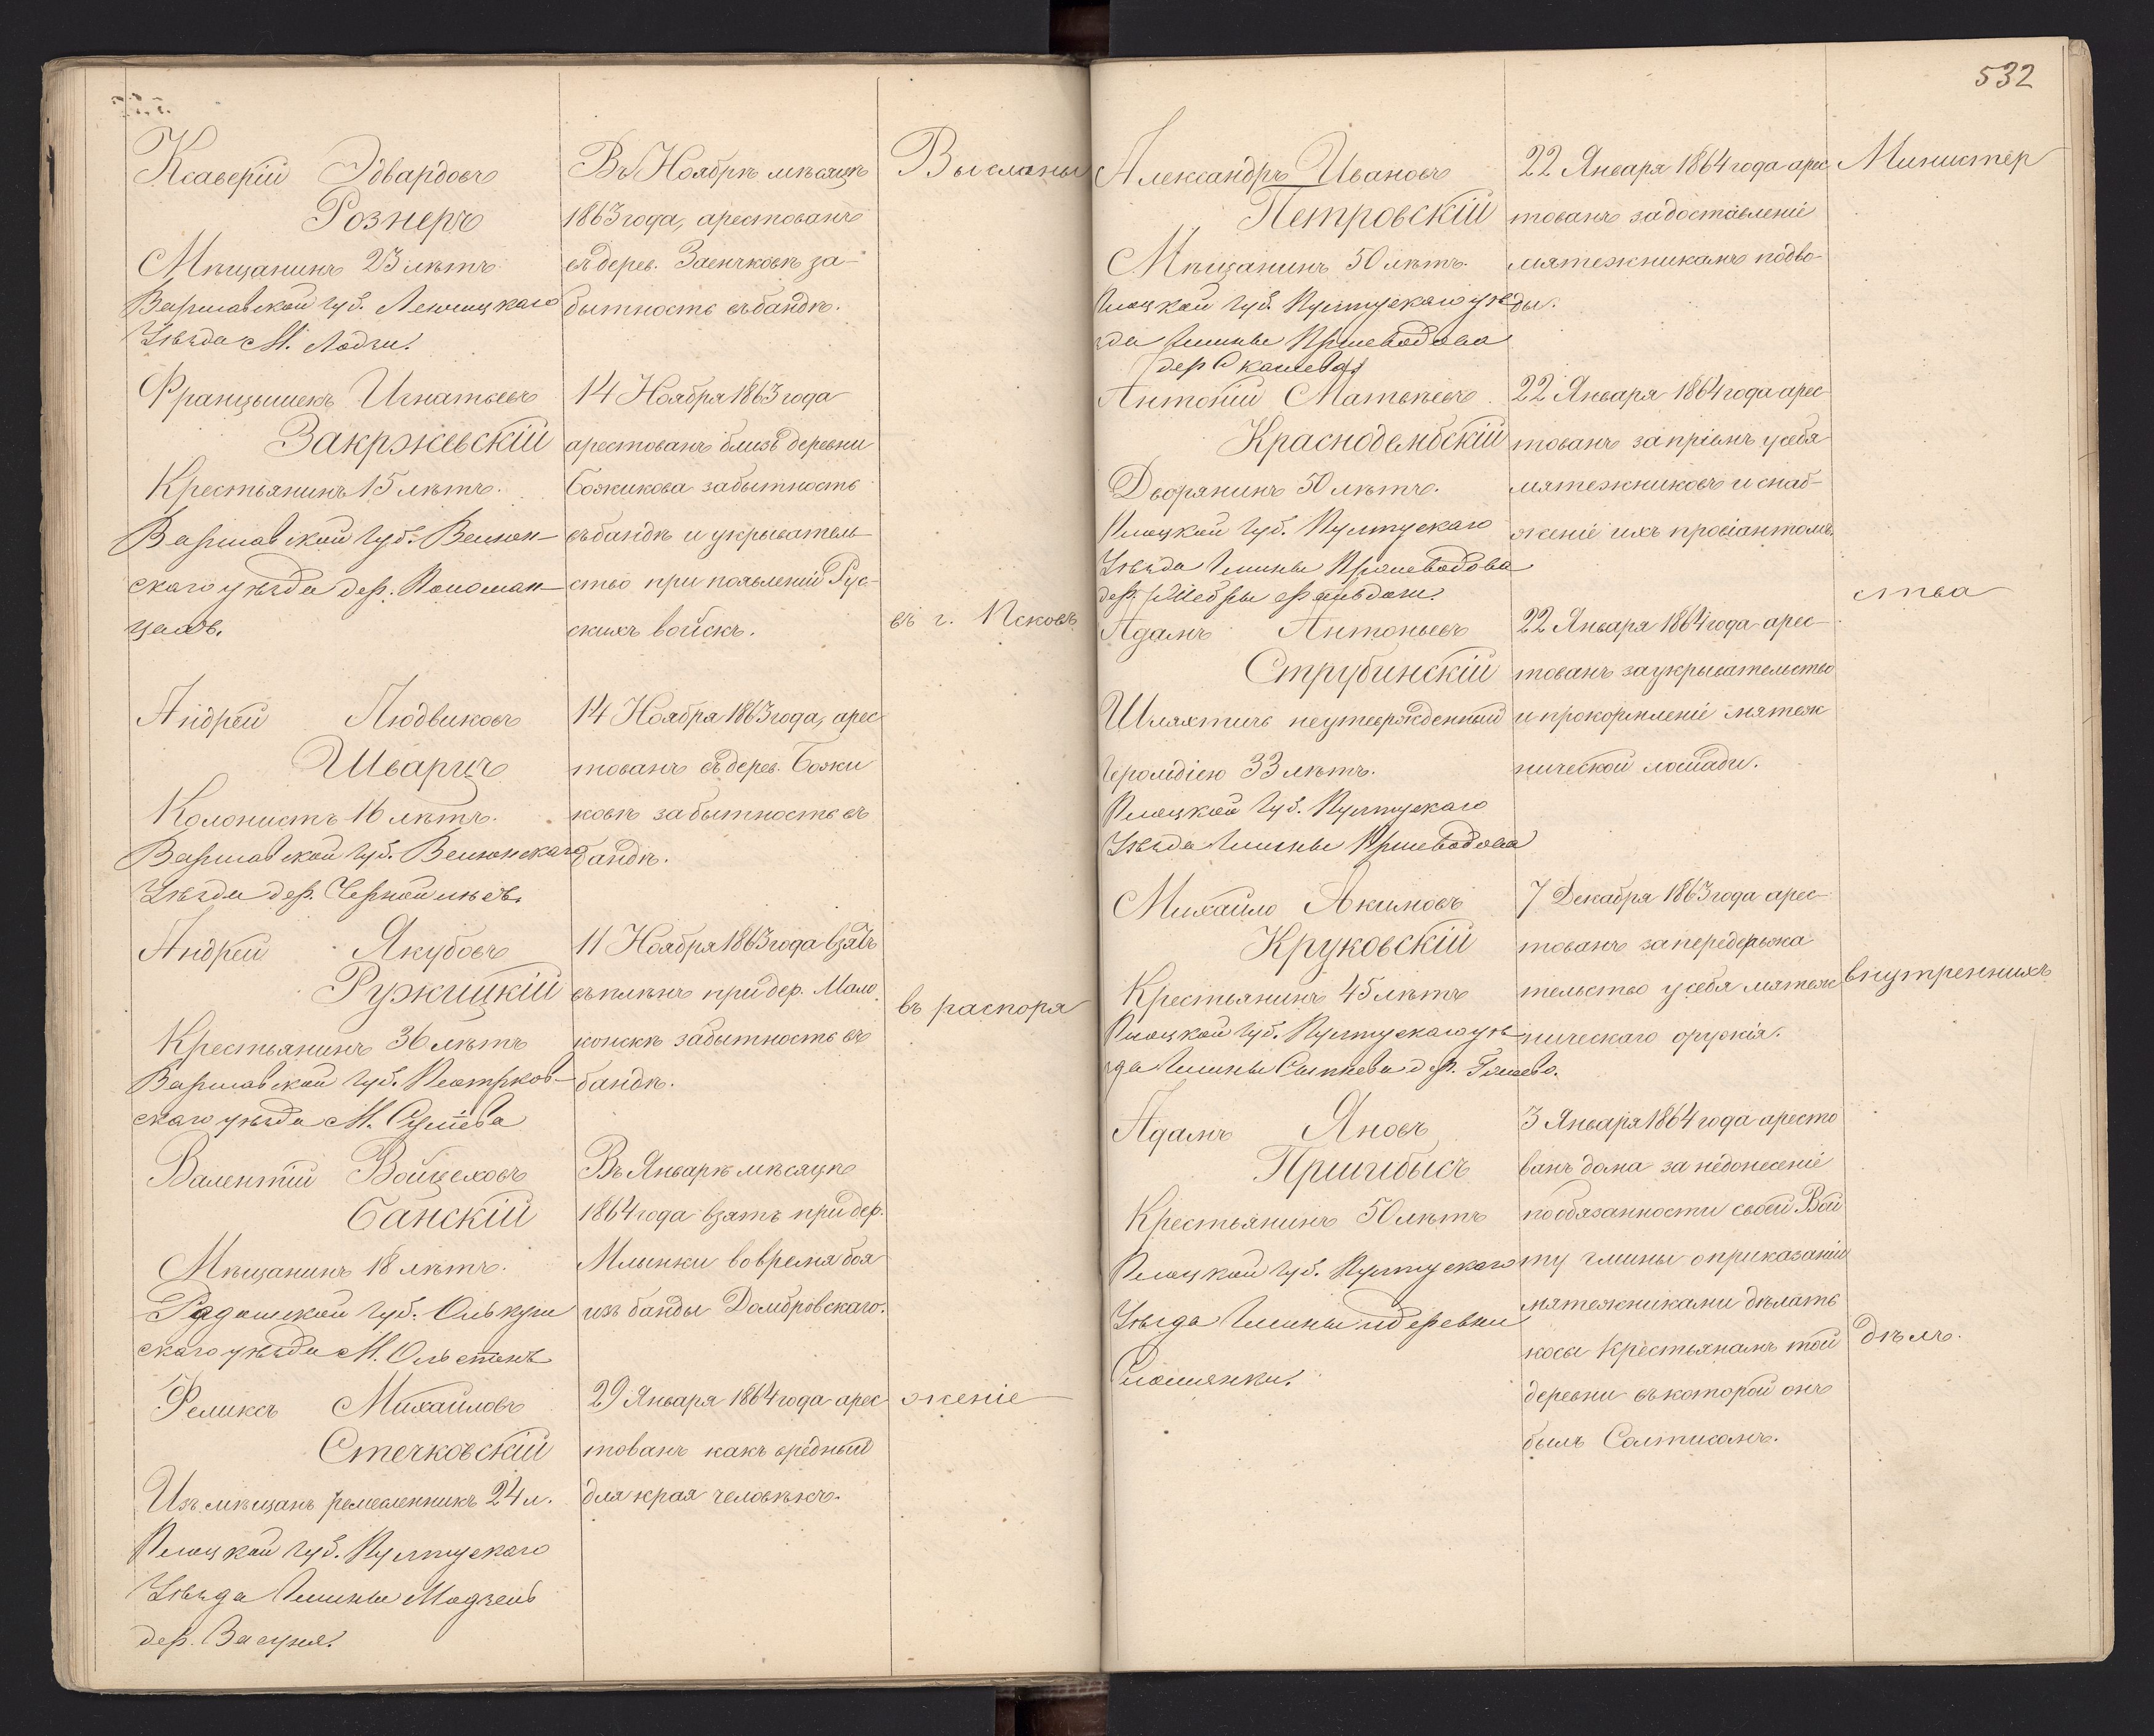 532
Ксаверій Эдвардовъ
Рознеръ
Мѣщанинъ 23 лѣтъ
Варшавской губ. Ленчицкаго
Уѣзда М. Лодзи.
Въ Ноябрѣ мѣсяцѣ
1863 года, арестованъ
въ дерев. Заенчковѣ за
бытность въ бандѣ.
Высланы
Францышекъ Игнатьевъ
Закржевскій
Крестьянинъ 15 лѣтъ.
Варшавской губ. Велюн-
скаго уѣзда дер.
14 Ноября 1863 года
арестованъ близь деревни
Божикова за бытность
въ бандѣ и укрыватель-
ство при появленіи Рус-
скихъ войскъ.
въ г. Псковъ
Андрей Людвиковъ
Шварцъ
Колонистъ 16 лѣтъ.
Варшавской губ. Велюнскаго
Уѣзда дер.
14 Ноября 1863 года, арес
тованъ въ дерев. Божи
ковѣ за бытность въ
бандѣ.
Андрей Якубовъ
Ружицкій
Крестьянинъ 36 лѣтъ
Варшавской губ. Петрков-
скаго уѣзда М.
11 Ноября 1863 года взятъ
въ плѣнъ при дер. Мало
конскѣ за бытность въ
бандѣ.
въ распоря
Валентій Войцеховъ
Банскій
Мѣщанинъ 18 лѣтъ.
Радомской губ. Олькуш
скаго уѣзда М. Ольстенъ
Въ Январѣ мѣсяцѣ
1864 года взятъ при дер.
Млынки во время боя
изъ банды Домбровскаго.
Феликсъ Михайловъ
Стечковскій
Изъ мѣщанъ ремесленникъ 24 л.
Плоцкой губ. Пултускаго
Уѣзда Гмины Модзель
дер.
29 Января 1864 года арес
тованъ какъ вредный
для края человѣкъ.
женіе
Александръ Ивановъ
Петровскій
Мѣщанинъ 50 лѣтъ.
Плоцкой губ. Пултускаго уѣ
зда Гмины Пршеводово
дер
22 Января 1864 года арес
тованъ за доставленіе
мятежникамъ подво-
ды.
Министер
Антоній Матвѣевъ
Краснодембскій
Дворянинъ 50 лѣтъ.
Плоцкой губ. Пултускаго
Уѣзда Гмины Пршеводова
дер.
22 Января 1864 года арес-
тованъ за пріемъ у себя
мятежниковъ и снаб-
женіе ихъ провіантомъ.
ства
Адамъ Антоньевъ
Струбинскій
Шляхтичь неутвержденный
Герольдіею 33 лѣтъ.
Плоцкой губ. Пултускаго
Уѣзда Гмины Пршеводова
22 Января 1864 года арес-
тованъ за укрывательство
и прокормленіе мятеж
нической лошади.
Михайло Акимовъ
Круковскій
Крестьянинъ 45 лѣтъ
Плоцкой губ. Пултускаго уѣ
зда Гмины дер.
7 Декабря 1863 года арес-
тованъ за передержа
тельство у себя мятеж
ническаго оружія.
внутреннихъ
Адамъ Яновъ
Пригибысъ
Крестьянинъ 50 лѣтъ
Плоцкой губ. Пултускаго
Уѣзда Гмины и деревни
3 Января 1864 года аресто
ванъ дома за недонесеніе
по обязанности своей Вой
ту гмины о приказаніи
мятежниками дѣлать
косы крестьянамъ той
деревни въ которой онъ
былъ Солтисомъ.
дѣлъ.